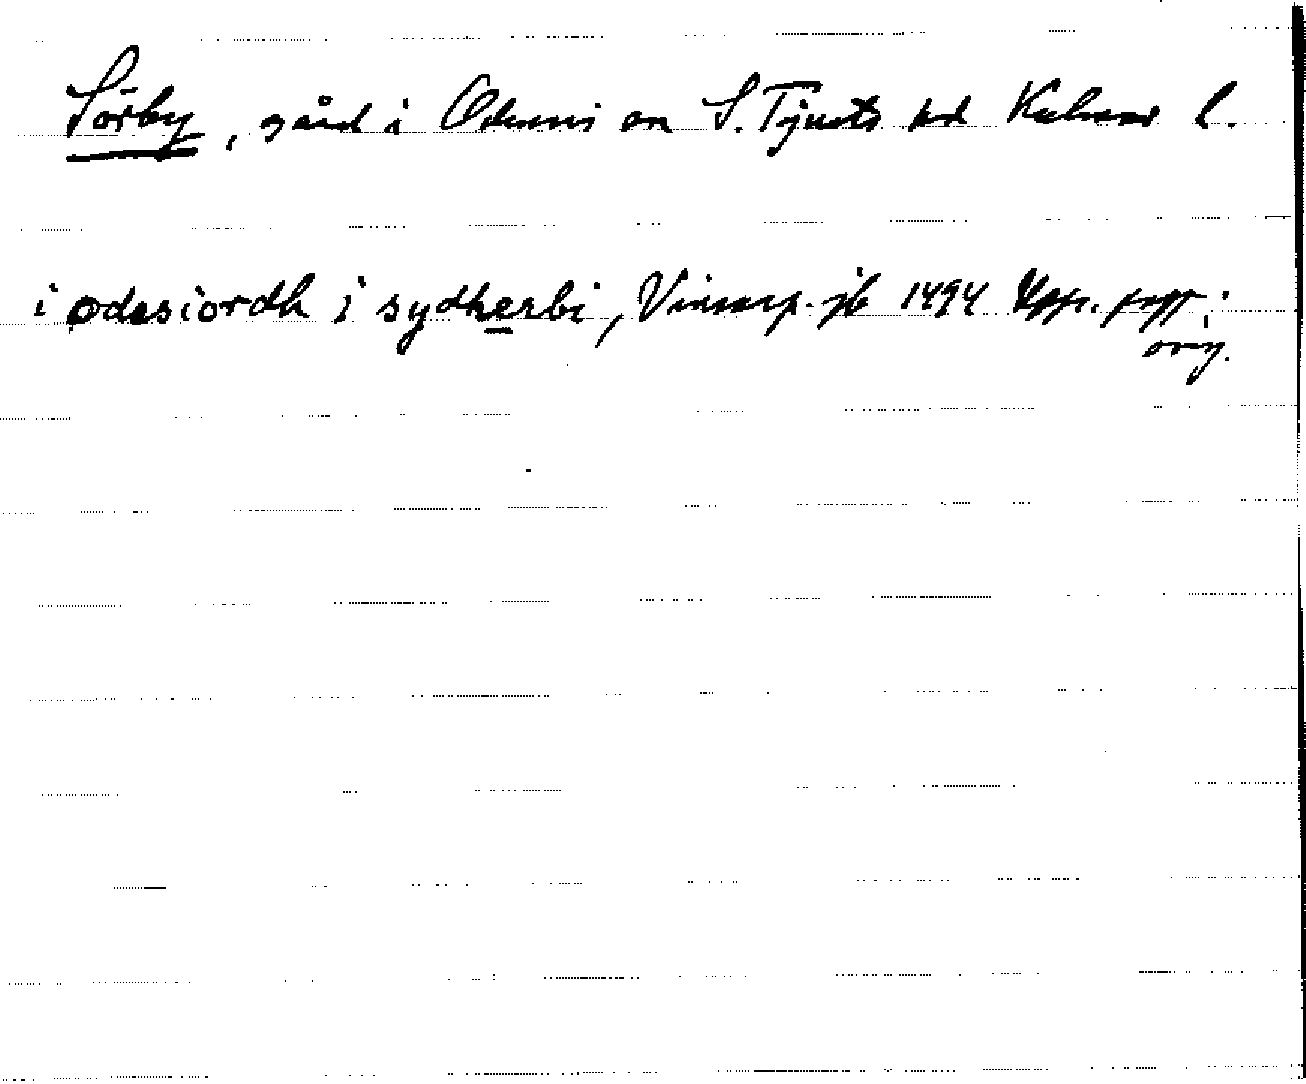 Sörby, gård i Odensvi sn S. Tjusts hd Kalmar l.
i ødesiordh i sydherbi, Vinsarp. jb 1494 Upps. 
orig.